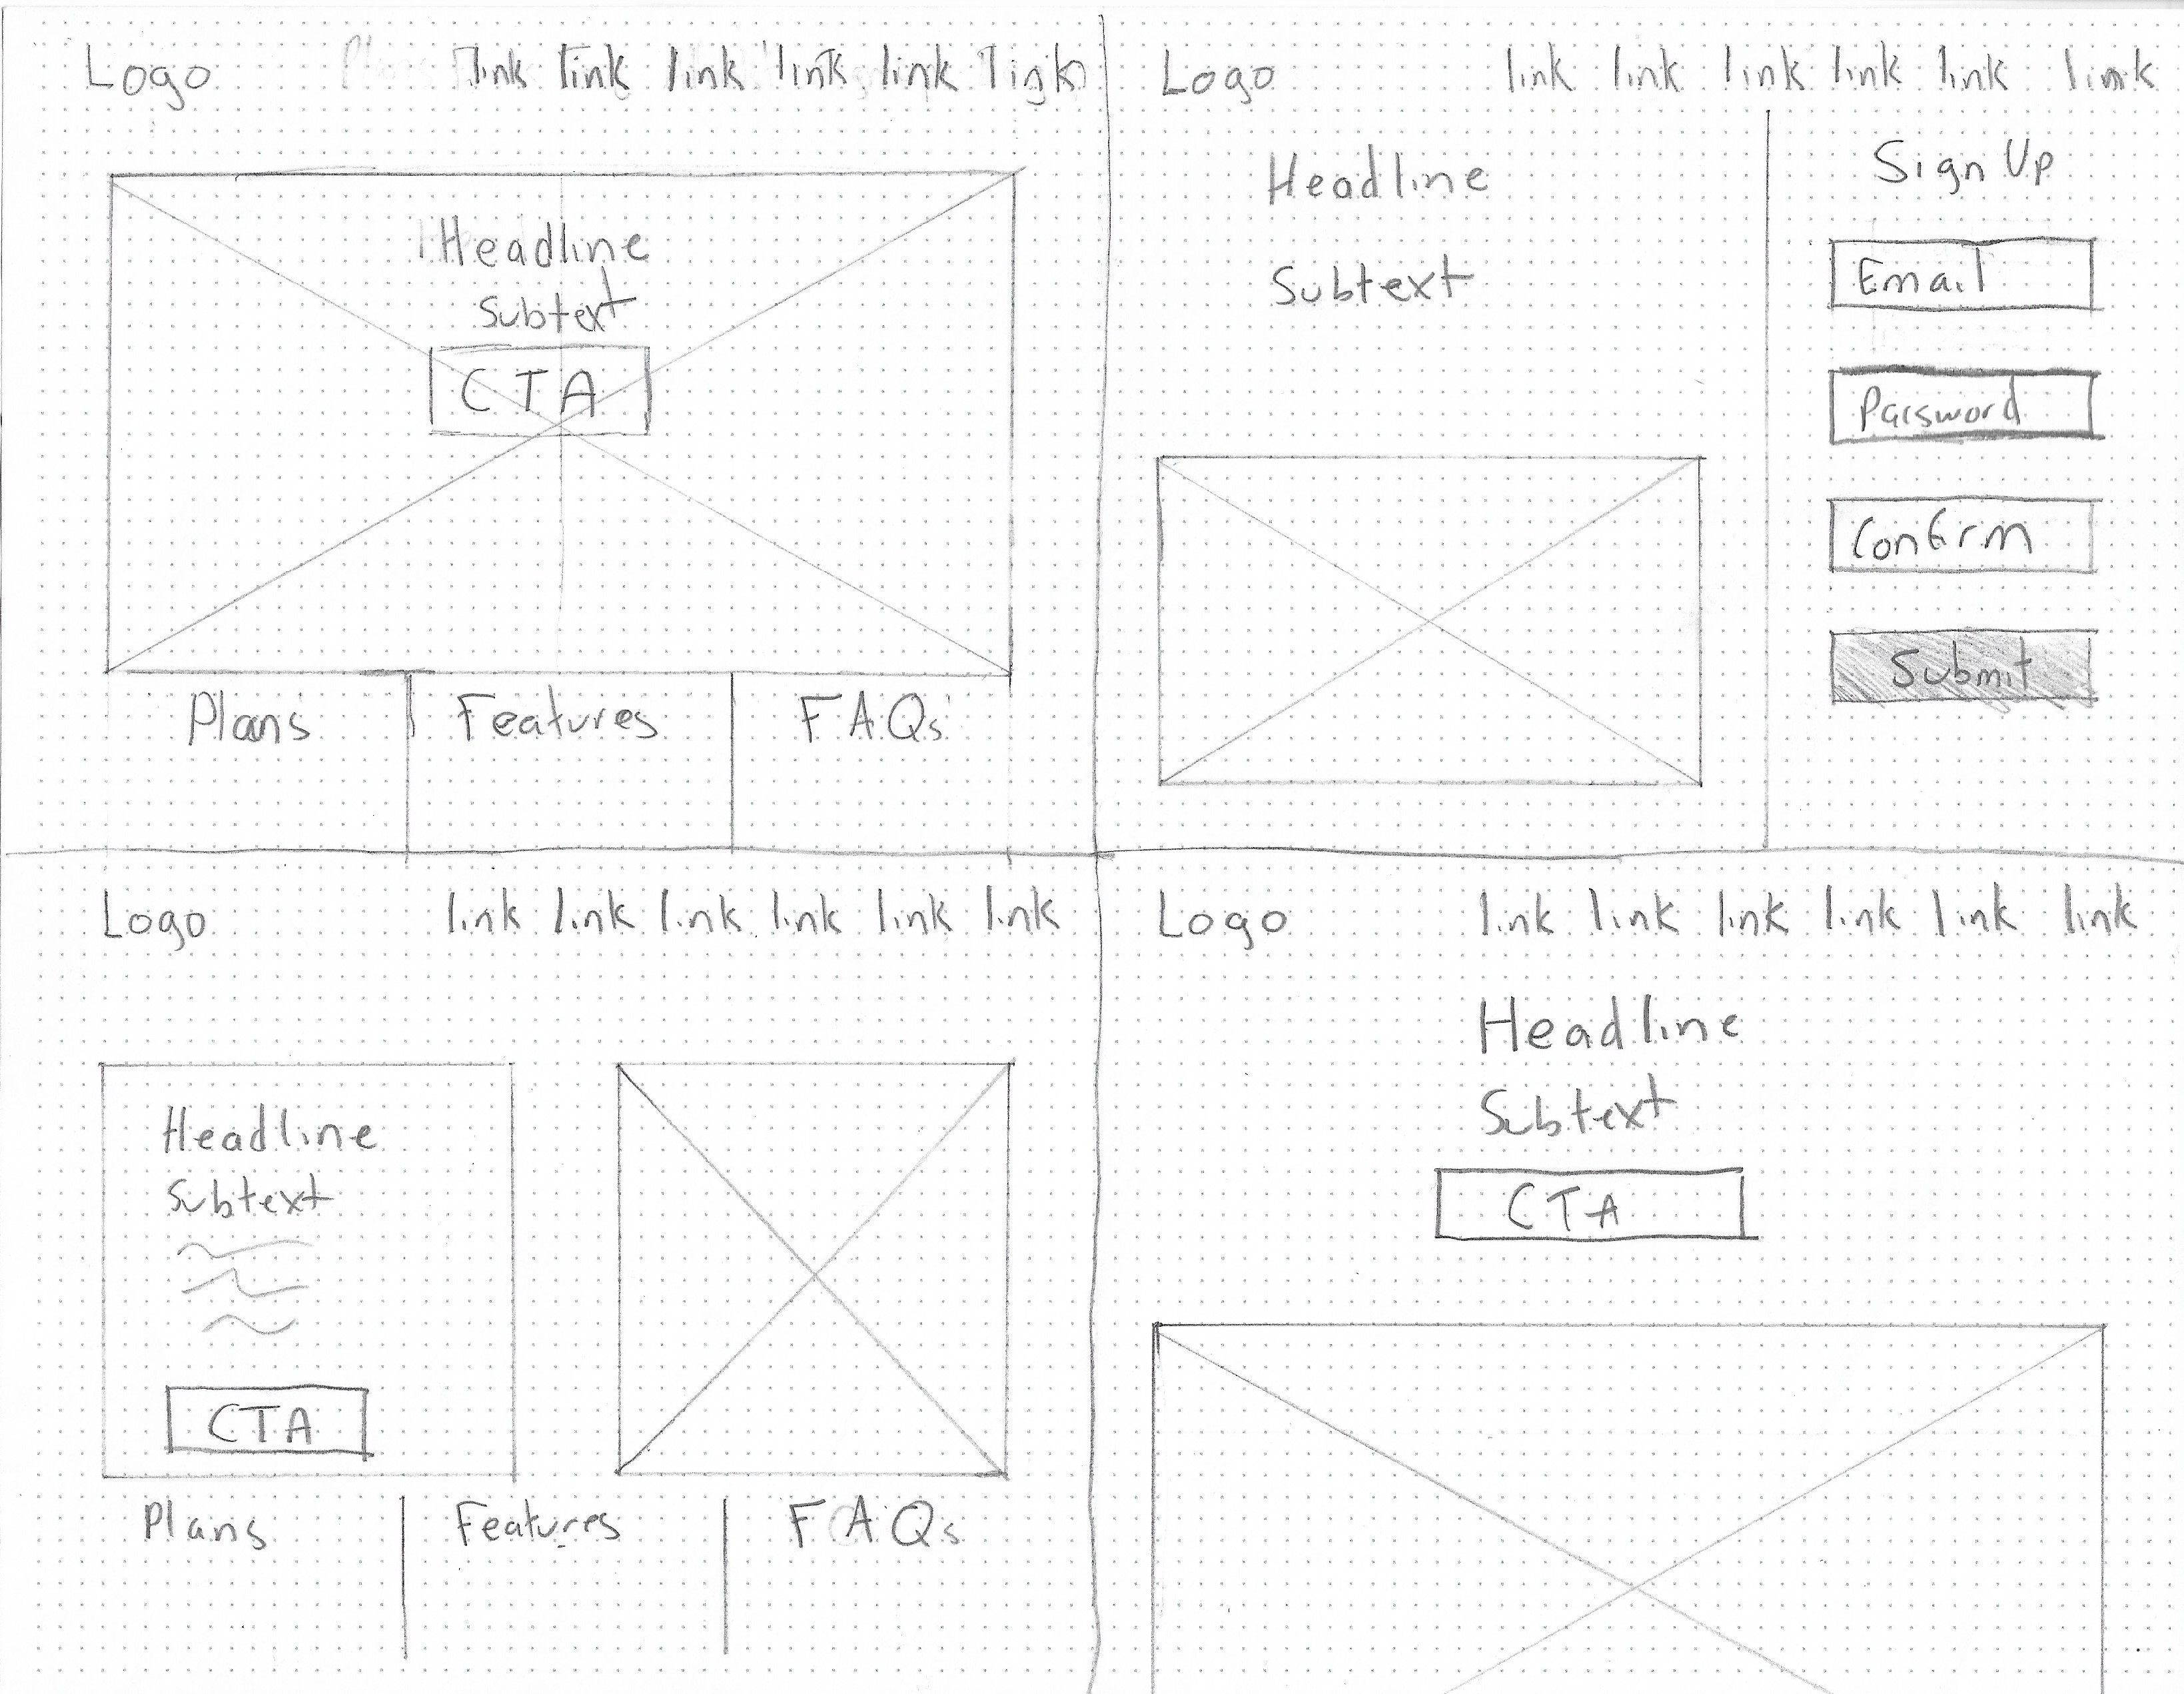 Logo link link link link link link
Headline
Subtext
CTA
Plans Features FAQs
Logo link link link link link link
Headline
Subtext
Sign Up
Email
Password
Confirm
Submit
Logo link link link link link link
Headline
Subtext
CTA
Plans Features FAQs
Logo link link link link link link
Headline
Subtext
CTA